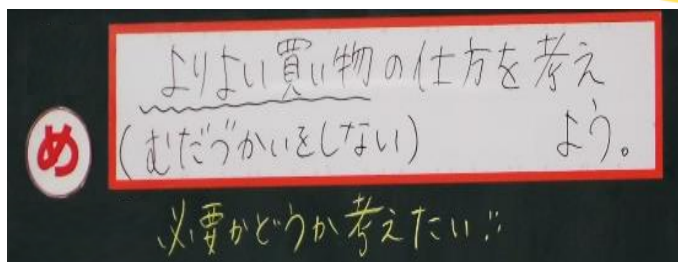 め
よりよい買い物の仕方を考え
(むだづかいをしない) よう。
必要かどうか考えたい!!